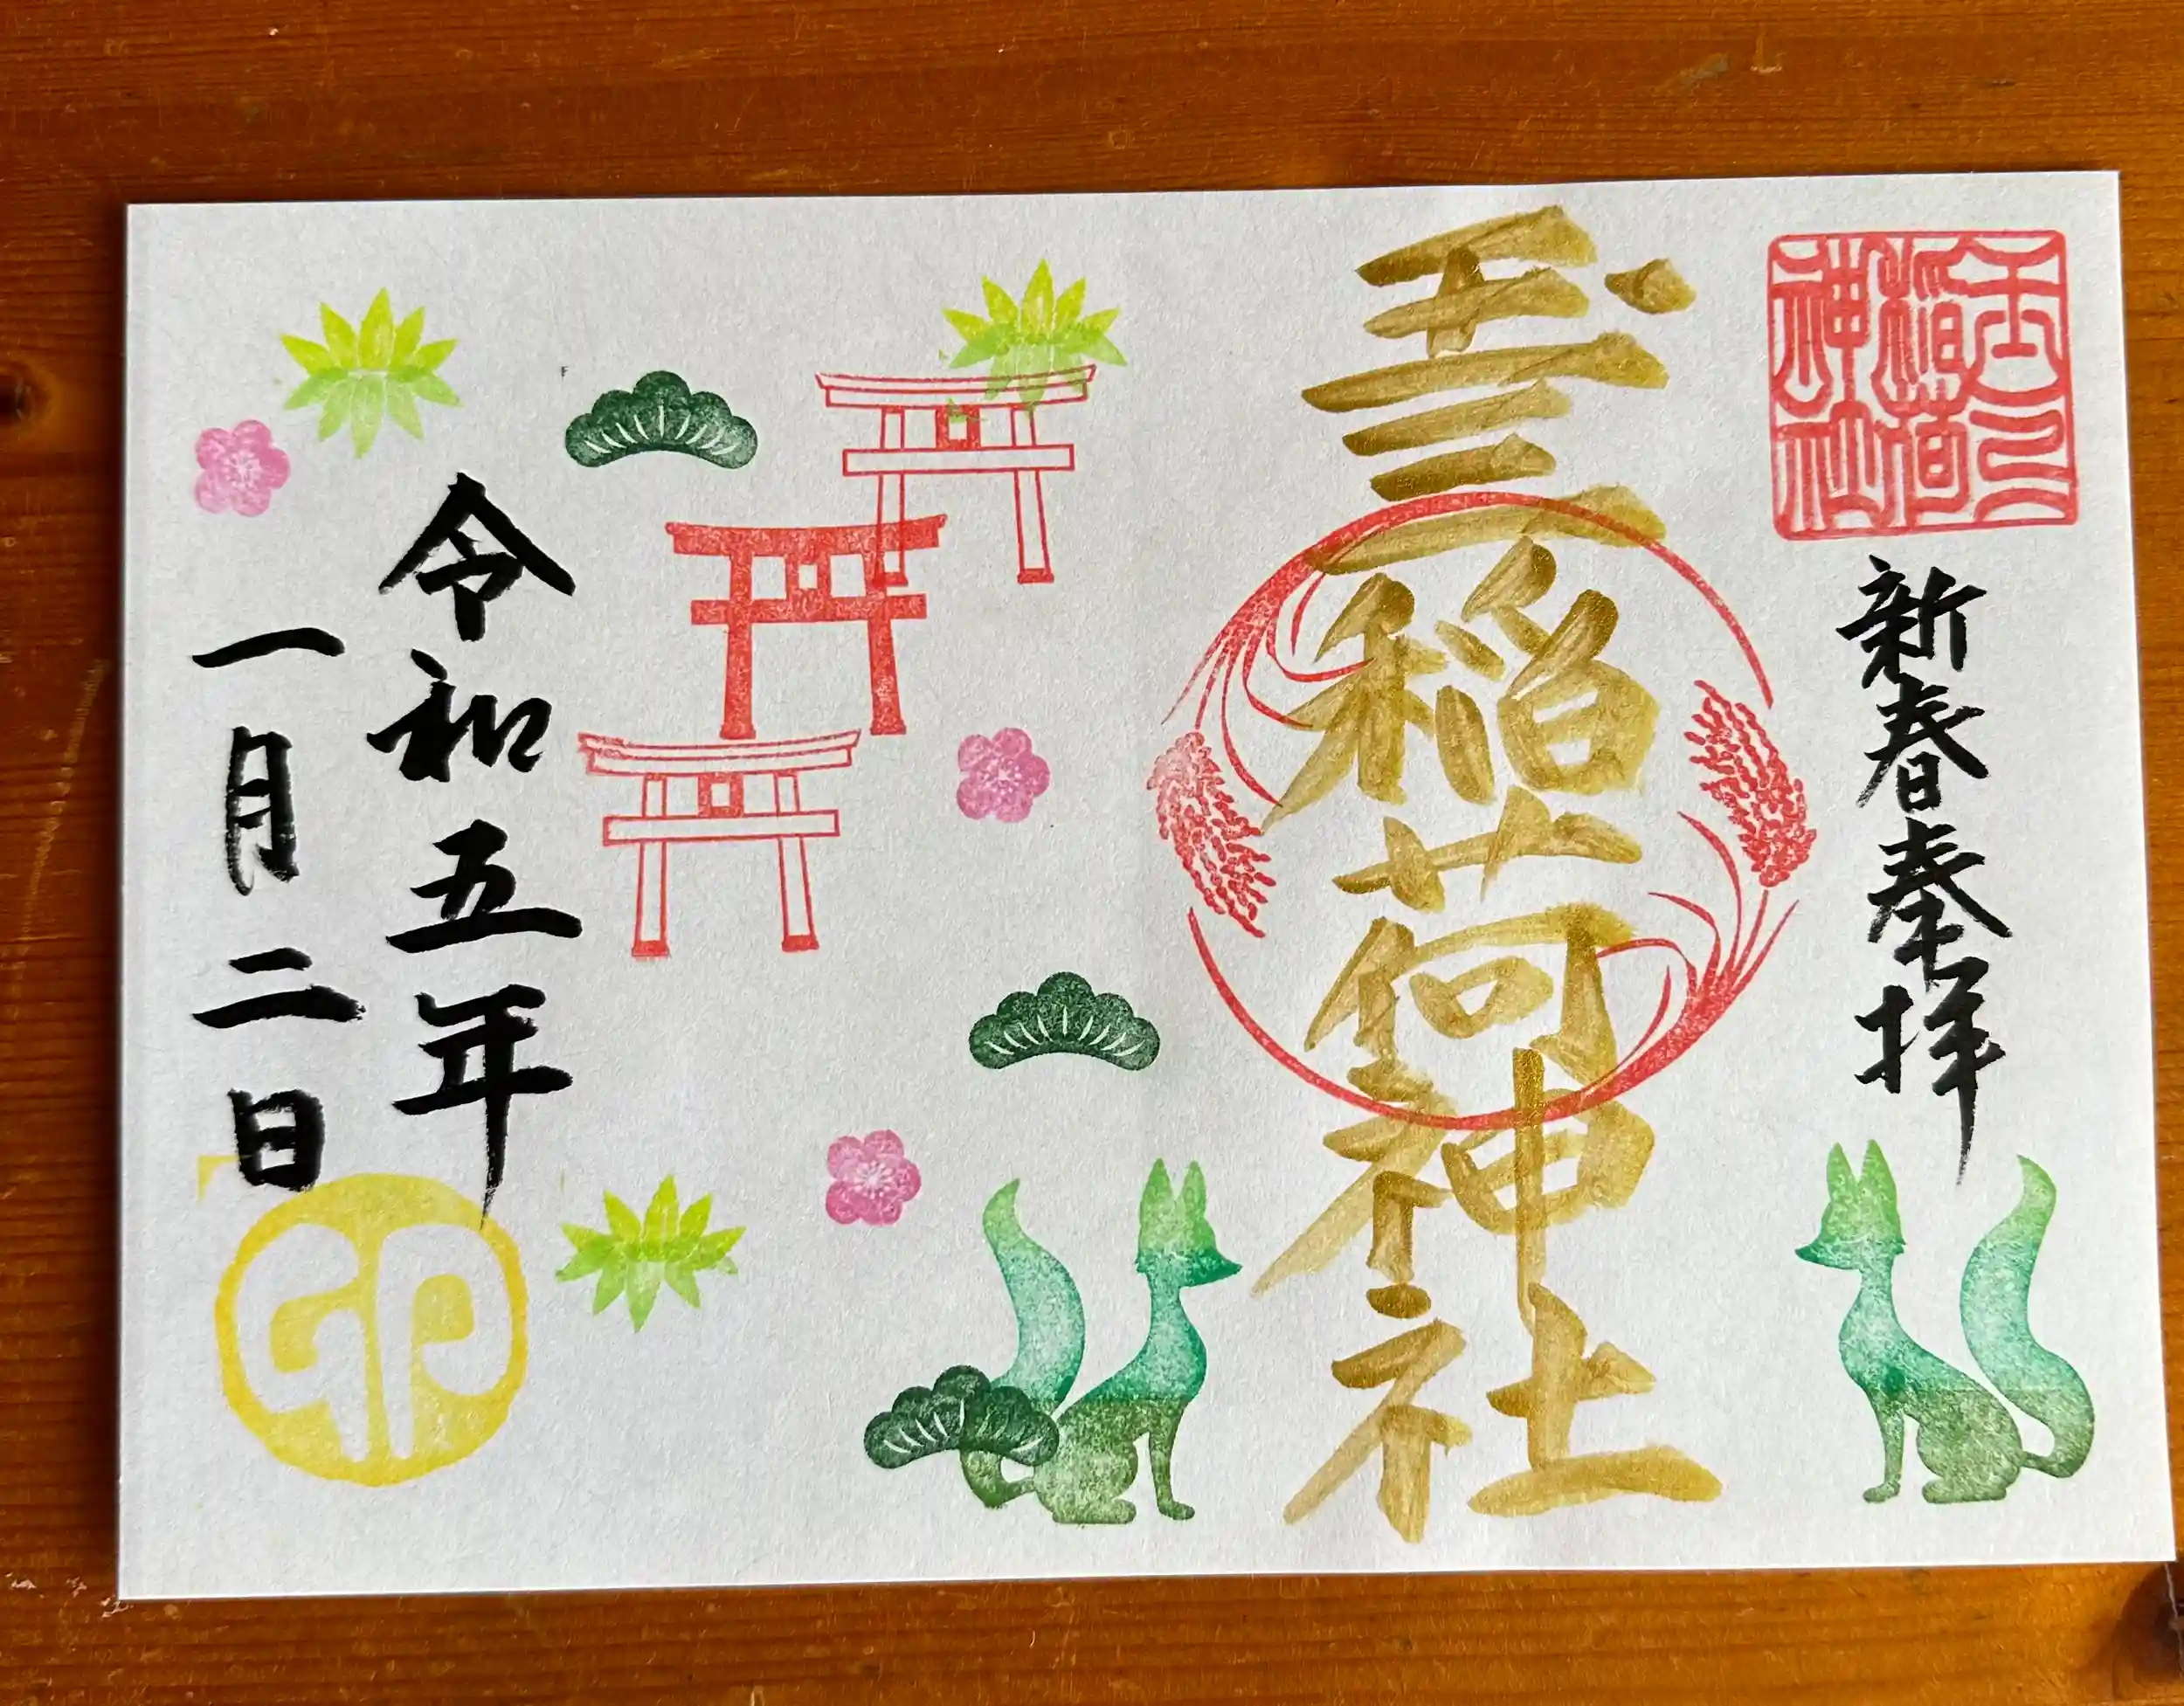 玉三稲荷神社
新春奉拝
玉三稲荷神社
令和五年
一月二日
卯